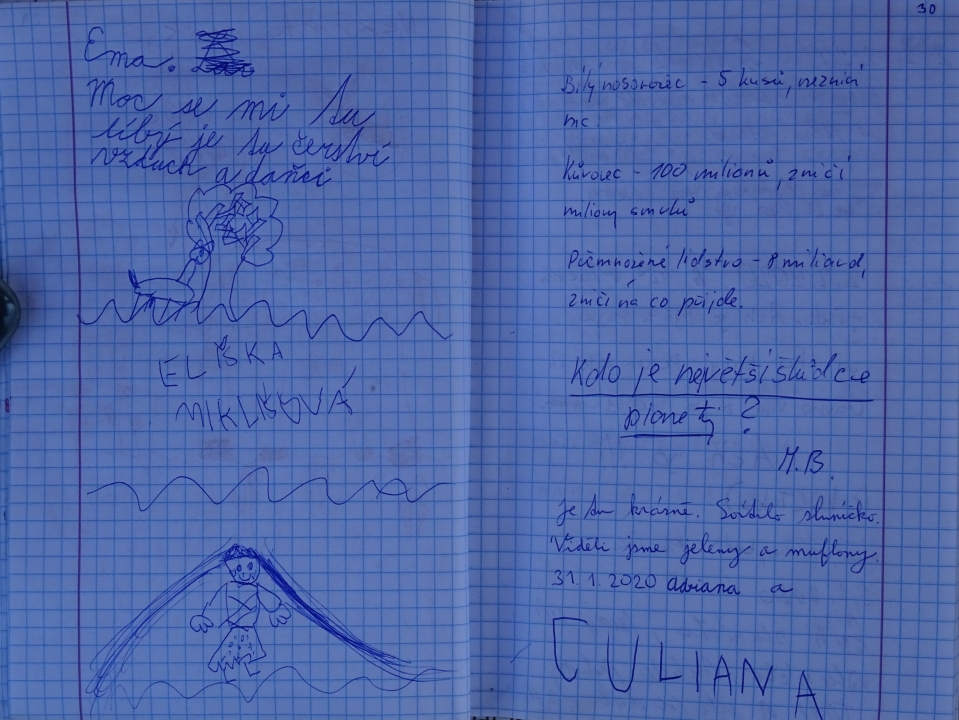 Ema.
Moc se mi tu
líbý je tu čerství
vzduch a daňci
ELIŠKA
MIKLÍKOVÁ
30
Bílý nosorožec - 5 kusů, nezničí
nic.
Kůrovec - 100 milionů, zničí
miliony smrků
Přemnožené lidstvo - 8 miliard,
zničí na co přijde.
Kdo je největší škůdce
planety ?
M.B.
je tu krásně. Svítilo sluníčko.
Viděli jsme jeleny a muflony.
31.1.2020 Adriana a
JULIANA